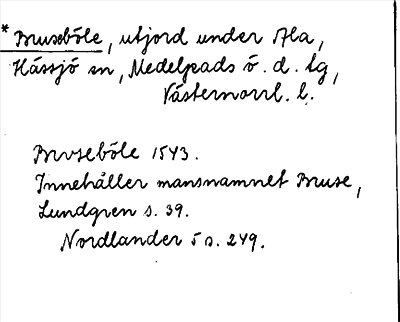 * Bruseböle, utjord under Ala,
Hässjö sn, Medelpads ö. d. tg,
Västernorrl. l.
Brvseböle 1543.
Innehåller mansnamnet Bruse,
Lundgren s. 39.
Nordlander 5 s. 249.